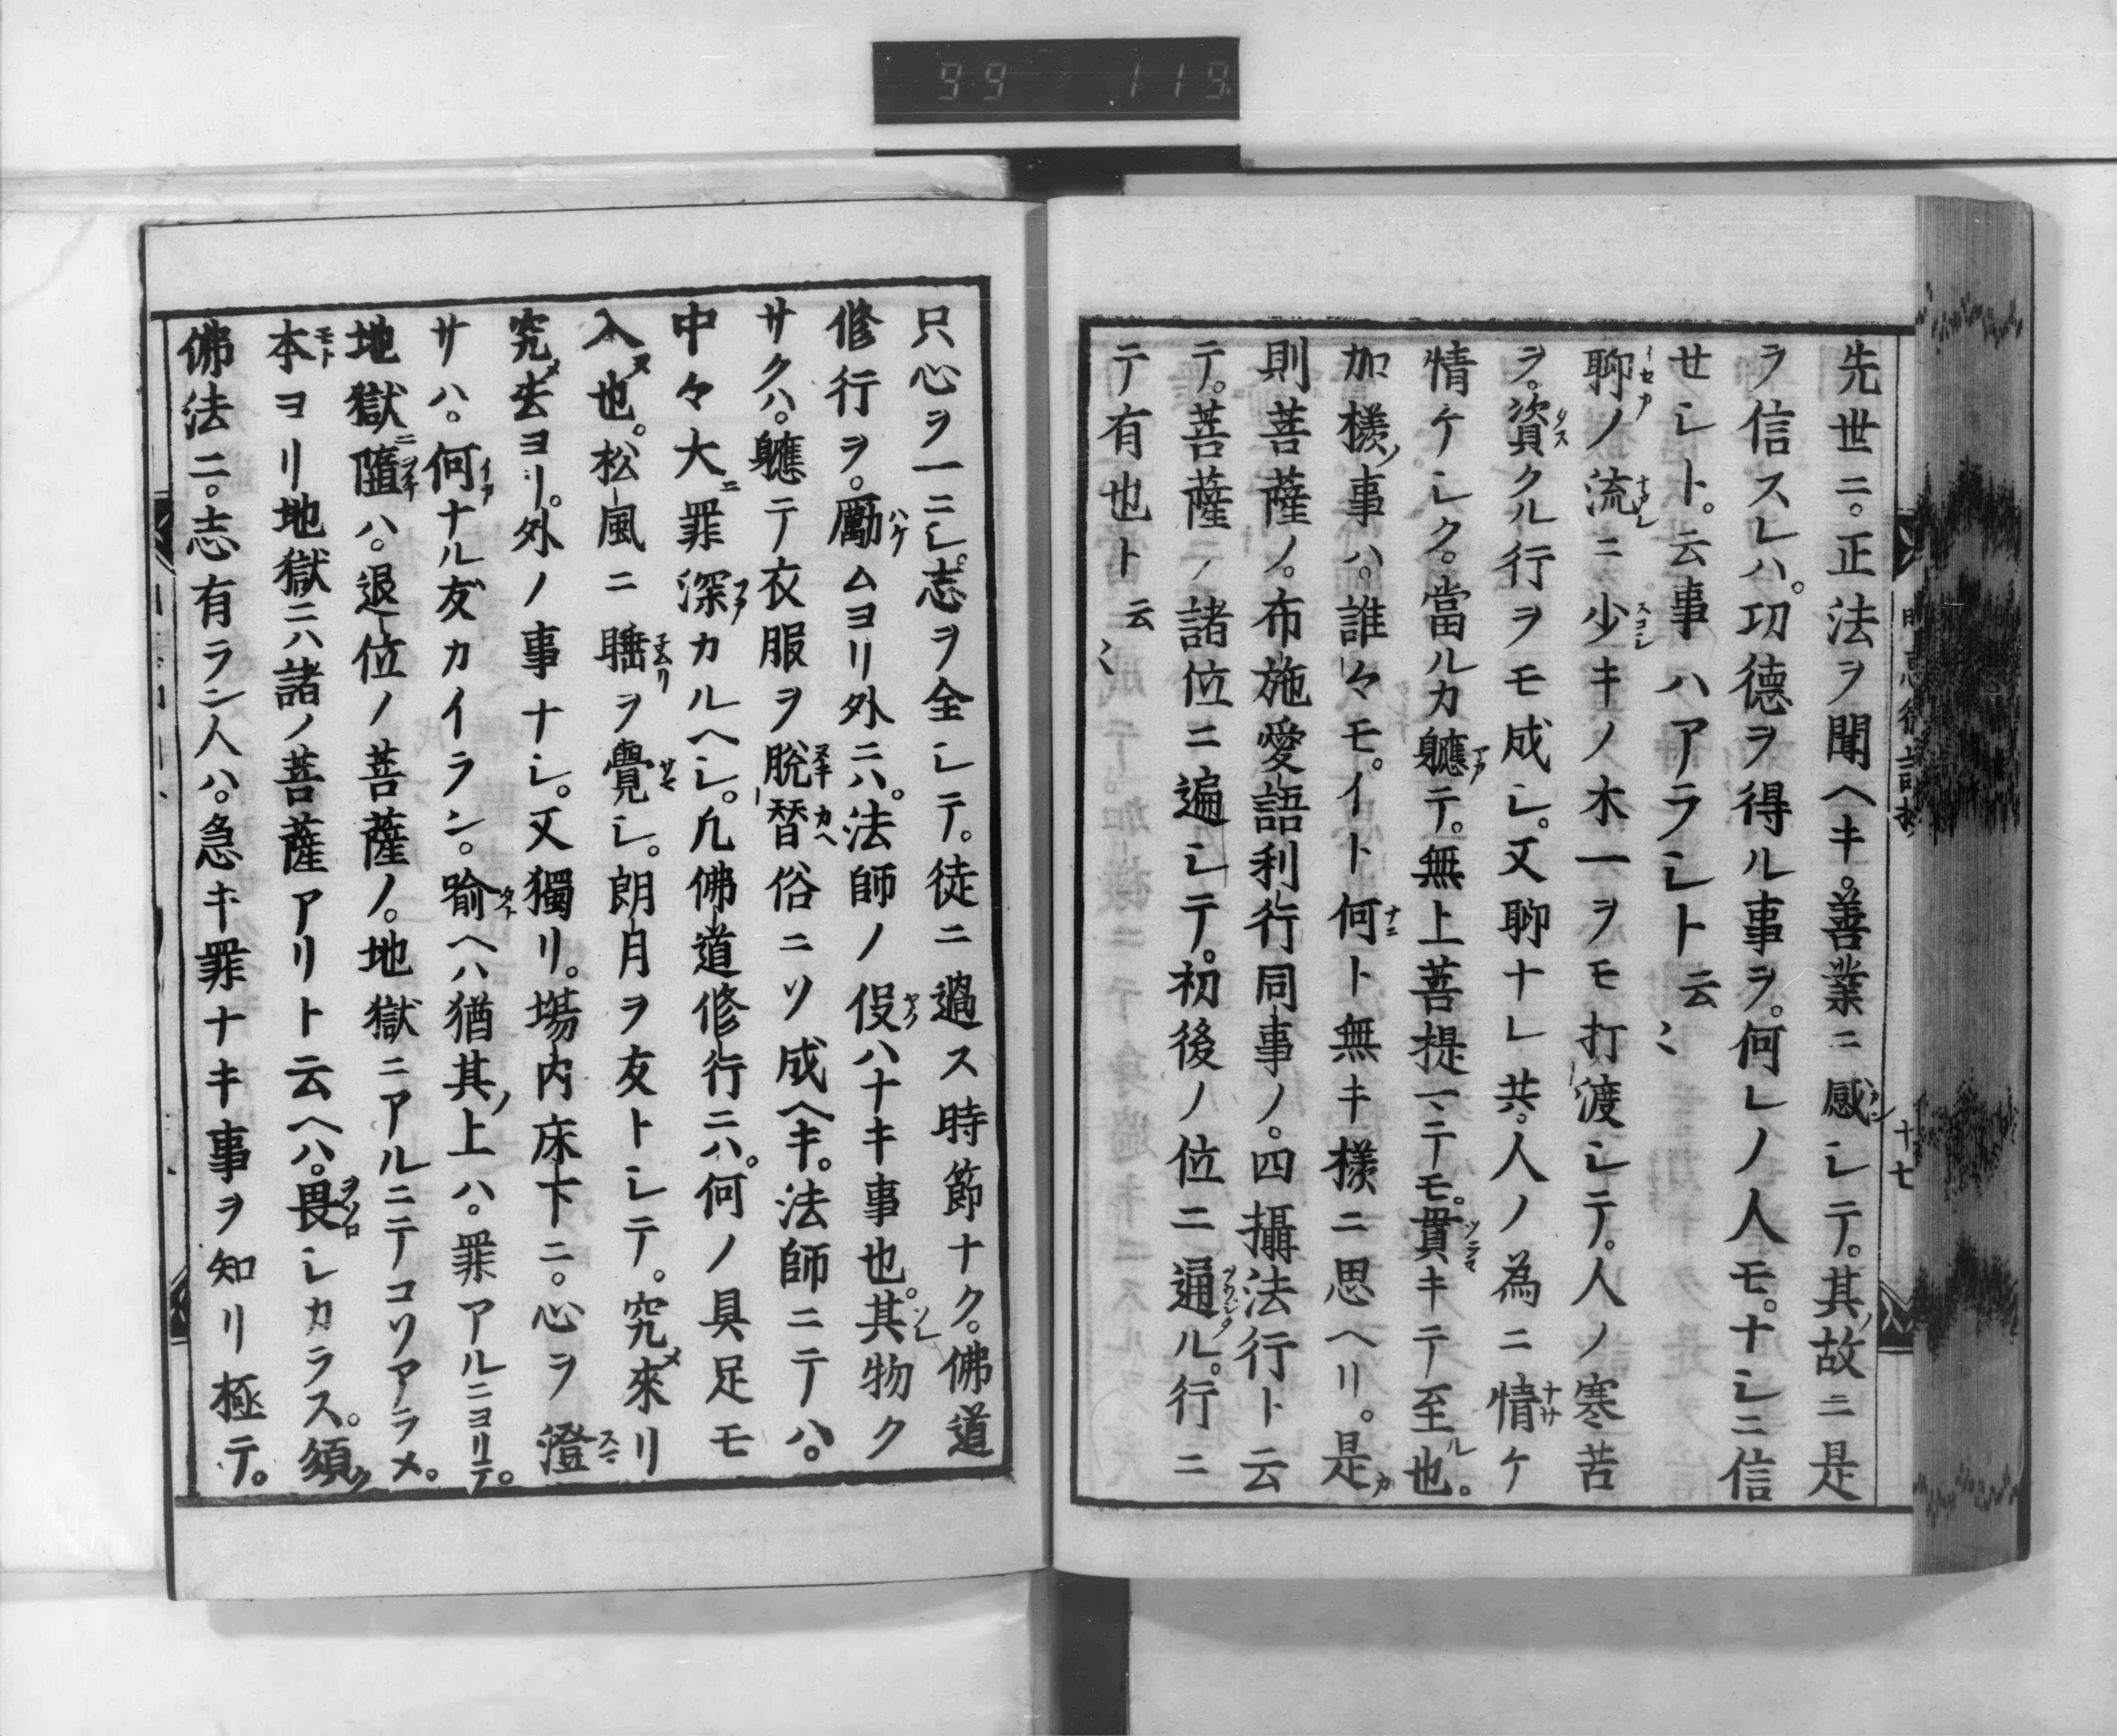 99 119
十七
先世ニ。正法ヲ聞ヘキ。善業ニ感シテ。其ノ故ニ是
ヲ信スレハ。功徳ヲ得ル事ヲ。何レノ人モ。ナシニ信
せシト。云事ハアラシト云〻
聊ノ流ニ少キノ木一ヲモ打渡シテ。人ノ寒苦
ヲ。資クル行ヲモ成シ。又聊ナレ共。人ノ為ニ情ケ
情ケシク。當ルカ軈テ。無上菩提一ニテモ。貫キテ至ル也。
加様ノ事ハ。誰々モ。イト何ト無キ様ニ思ヘリ。是カ
則菩薩ノ。布施愛語利行同事ノ。四攝法行ト云
テ。菩薩ノ諸位ニ遍シテ。初後ノ位ニ通ル。行ニ
テ有也ト云〻
只心ヲ一ニシ。志ヲ全シテ。徒ニ過ス時節ナク。佛道
修行ヲ。勵ムヨリ外ニハ。法師ノ役ハナキ事也。其物ク
サクハ。軈テ衣服ヲ脱替俗ニソ成ヘキ。法師ニテハ。
中々大ニ罪深カルヘシ。凡佛道修行ニハ。何ノ具足モ
入ヌ也。松風ニ睡ヲ覺シ。朗月ヲ友トシテ。究メ來リ
究メ去ヨリ。外ノ事ナシ。又獨リ。塲内床下ニ。心ヲ澄
サハ。何ナル友カイラン。喩ヘハ猶其ノ上ハ。罪アルニヨリテ。
地獄ニ墮ハ。退位ノ菩薩ノ。地獄ニアルニテコソアラメ。
本ヨリ地獄ニハ諸ノ菩薩アリト云ヘハ。畏シカラス。須ク
佛法ニ。志有ラン人ハ。急キ罪ナキ事ヲ知リ極テ。